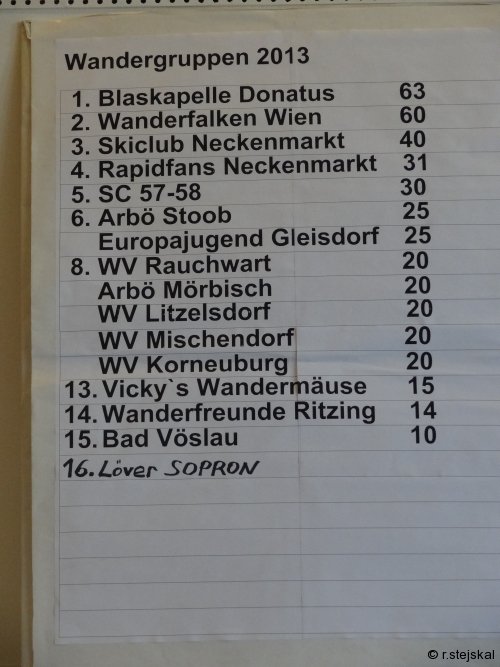 Wandergruppen 2013
1. Blaskapelle Donatus 63
2. Wanderfalken Wien 60
3. Skiclub Neckenmarkt 40
4. Rapidfans Neckenmarkt 31
5. SC 57-58 30
6. Arbö Stoob 25
Europajugend Gleisdorf 25
8. WV Rauchwart 20
Arbö Mörbisch 20
WV Litzelsdorf 20
WV Mischendorf 20
WV Korneuburg 20
13. Vicky`s Wandermäuse 15
14. Wanderfreunde Ritzing 14
15. Bad Vöslau 10
16. Löver SOPRON
© r.stejskal